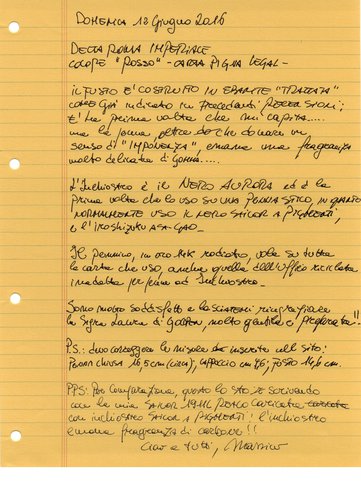 DOMENICA 12 Giugno 2016
DELTA ROMA IMPERIALE
COLORE "ROSSO" - CARTA PIGNA LEGAL -
IL FUSTO E' COSTRUITO IN EBANITE "TRATTATA"
COME già indicato in precedenti RECENSIONI;
E' la prima volta che mi capita.....
ma la penna oltre che donare un
senso di "IMPONENZA", emana una fragranza
molto delicata di GOMMA.....
L'Inchiostro è il NERO AURORA ed è la
prima volta che lo uso su una PENNA STILO, in quanto
NORMALMENTE USO IL NERO SAILOR A PIGMENTI,
e l'IROSHIZUKU ASA-GAO.
Il Pennino, in oro 14K rodiato, vola su tutta
la carta che uso, anche quella dell'Ufficio riciclata
inadatta perfino ad Inchiostro.
Sono molto soddisfatto e lasciatemi ringraziare
la Sig.ra Laura di molto gentile e preparata!!
P.S.: devo correggere la misura inserite nel sito:
PENNA CHIUSA 16,5 cm (circa), CAPPUCCIO cm FUSTO 14,6 cm.
PPS: Per comparazione, questo lo sto scrivendo
con la mia SAILOR caricata
con inchiostro SAILOR A PIGMENTI: l'inchiostro
emana fragranza di carbone!!
Ciao a tutti, Massimo